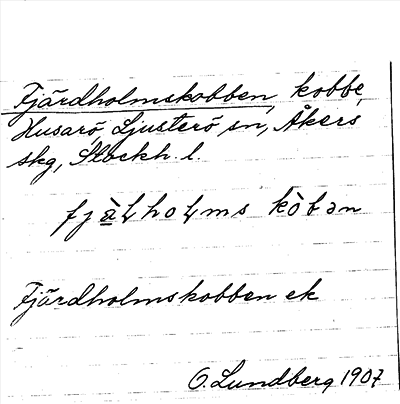 Fjärdholmskobben, kobbe,
Husarö, Ljusterö sn, Åkers
skg, Stockh. l.
Fjärdholmskobben ek
O. Lundberg 1907